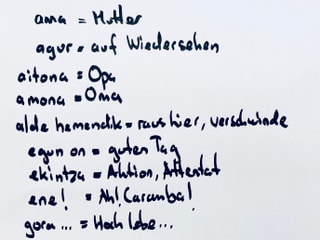 ama = Mutter
agur = auf Wiedersehen
aitona = Opa
amona = Oma
alde hemendik = raus hier, verschwinde
egun on = guten Tag
ekintza = Aktion, Attentat
ene! = Ah! Caramba!
gora ... = Hoch lebe...